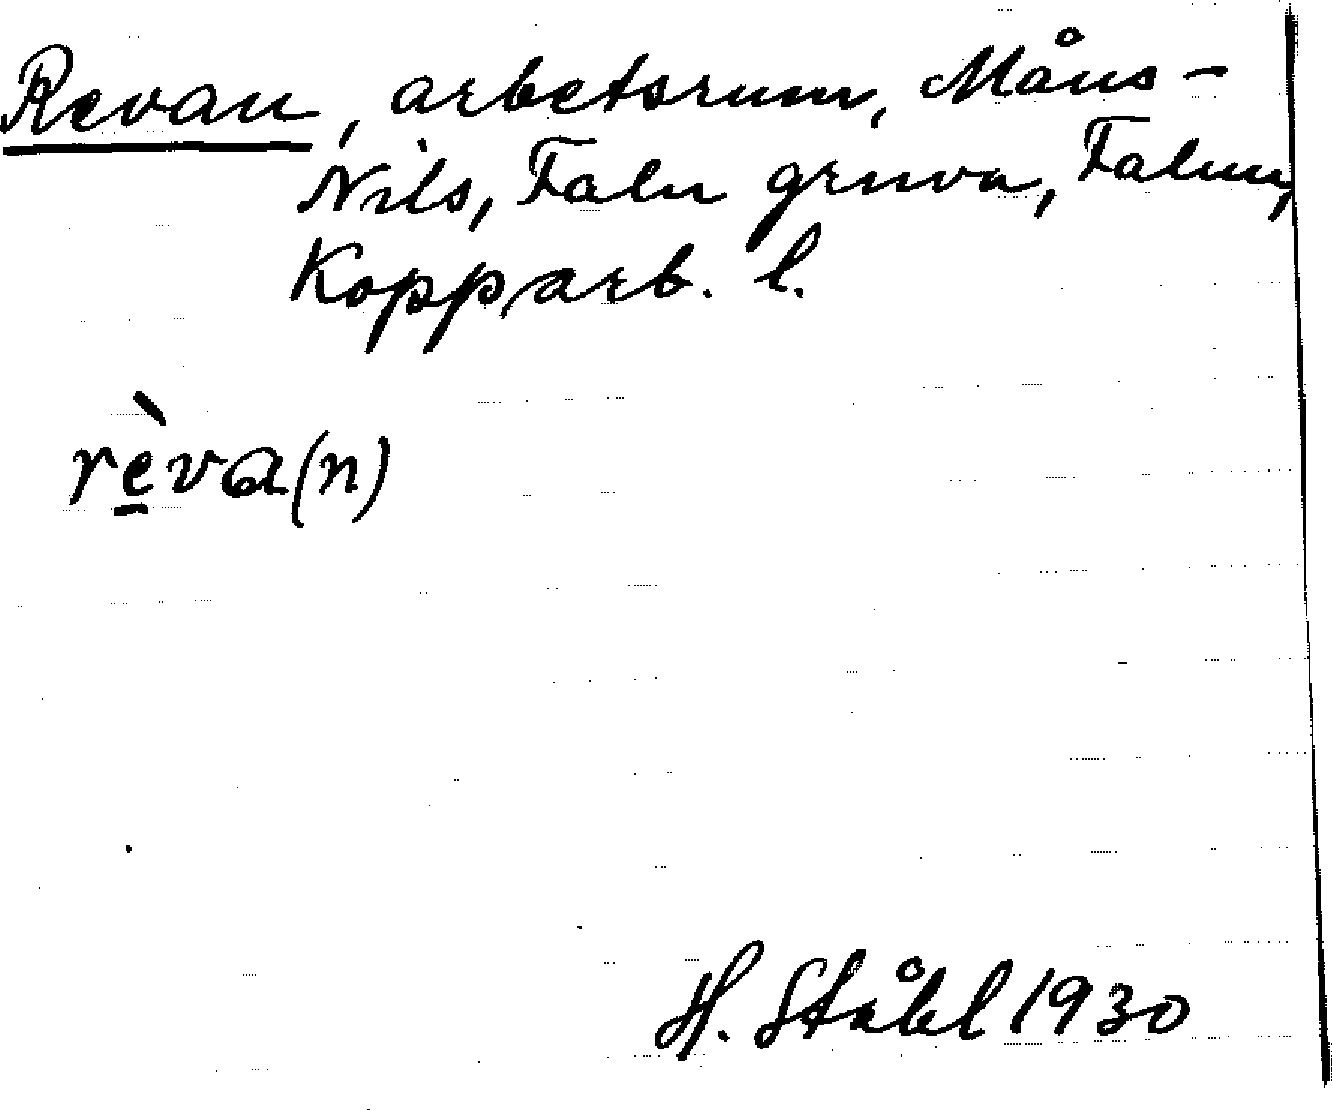 Revan, arbetsrum, Måns-
Nils, Falu gruva, Falun,
Kopparb. l.
rèva(n)
H. Ståhl 1930